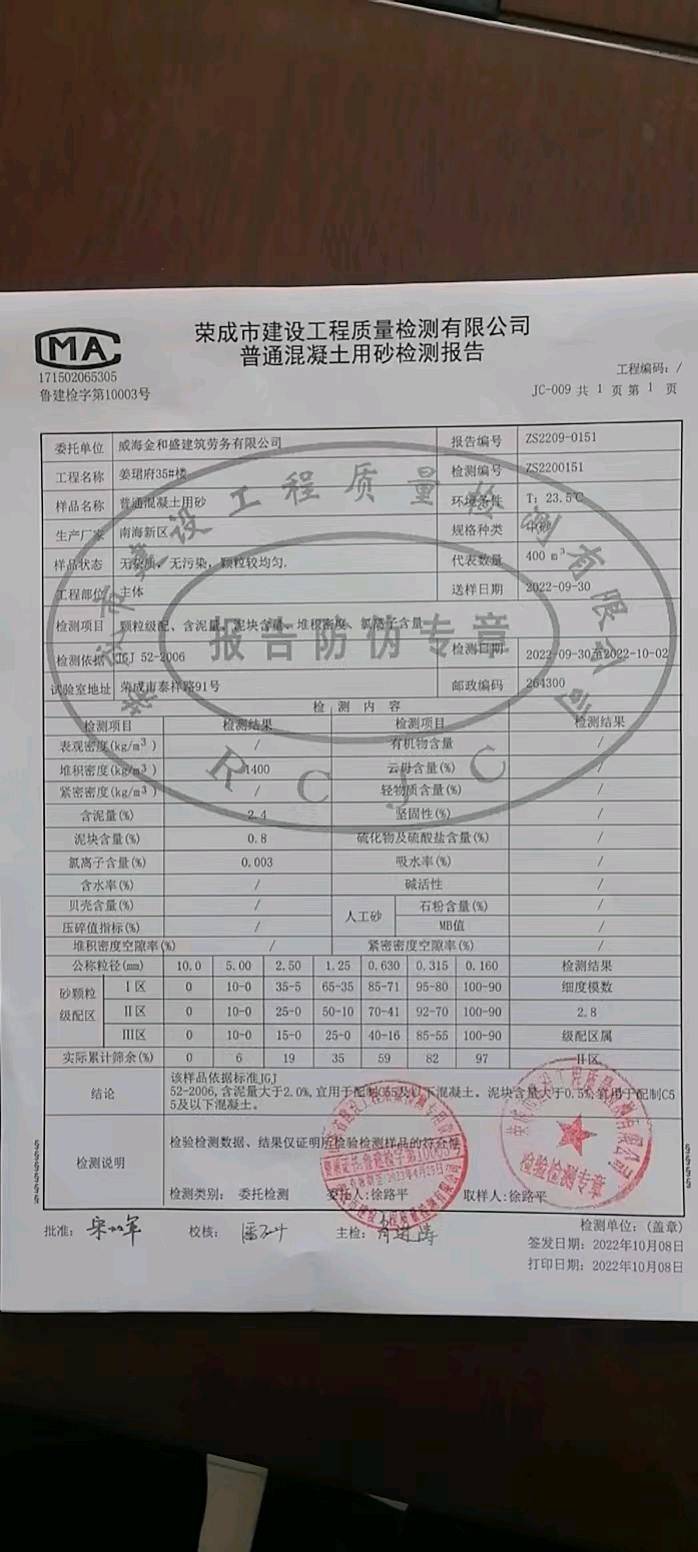 荣成市建设工程质量检测有限公司
普通混凝土用砂检测报告
MA
171502065305
鲁建检字第10003号
工程编码: /
JC-009 共 1 页 第 1 页
委托单位 威海金和盛建筑劳务有限公司 报告编号 ZS2209-0151
工程名称 姜珺府35#楼 检测编号 ZS2200151
样品名称 普通混凝土用砂 环境条件 T: 23.5℃
生产厂家 南海新区 规格种类 中砂
样品状态 无杂质,无污染,颗粒较均匀. 代表数量 400 m³
工程部位 主体 送样日期 2022-09-30
检测项目 颗粒级配、含泥量、泥块含量、堆积密度、氯离子含量
检测依据 JGJ 52-2006 检测日期 2022-09-30至2022-10-02
试验室地址 荣成市泰祥路91号 邮政编码 264300
报告防伪专章
RCJC
检 测 内 容
检测项目 检测结果 检测项目 检测结果
表观密度(kg/m³) / 有机物含量 /
堆积密度(kg/m³) 1400 云母含量(%) /
紧密密度(kg/m³) / 轻物质含量(%) /
含泥量(%) 2.4 坚固性(%) /
泥块含量(%) 0.8 硫化物及硫酸盐含量(%) /
氯离子含量(%) 0.003 吸水率(%) /
含水率(%) / 碱活性 /
贝壳含量(%) / 人工砂 石粉含量(%) /
压碎值指标(%) / MB值 /
堆积密度空隙率(%) / 紧密密度空隙率(%) /
公称粒径(mm) 10.0 5.00 2.50 1.25 0.630 0.315 0.160 检测结果
砂颗粒级配区 I区 0 10-0 35-5 65-35 85-71 95-80 100-90 细度模数
II区 0 10-0 25-0 50-10 70-41 92-70 100-90 2.8
III区 0 10-0 15-0 25-0 40-16 85-55 100-90 级配区属
实际累计筛余(%) 0 6 19 35 59 82 97 II区
结论 该样品依据标准JGJ
52-2006,含泥量大于2.0%,宜用于配制C55及以下混凝土。泥块含量大于0.5%,宜用于配制C5
5及以下混凝土。
检测说明 检验检测数据、结果仅证明所检验检测样品的符合性
检测类别: 委托检测 委托人:徐路平 取样人:徐路平
检验检测专章
批准: 校核: 主检:
检测单位:(盖章)
签发日期: 2022年10月08日
打印日期: 2022年10月08日